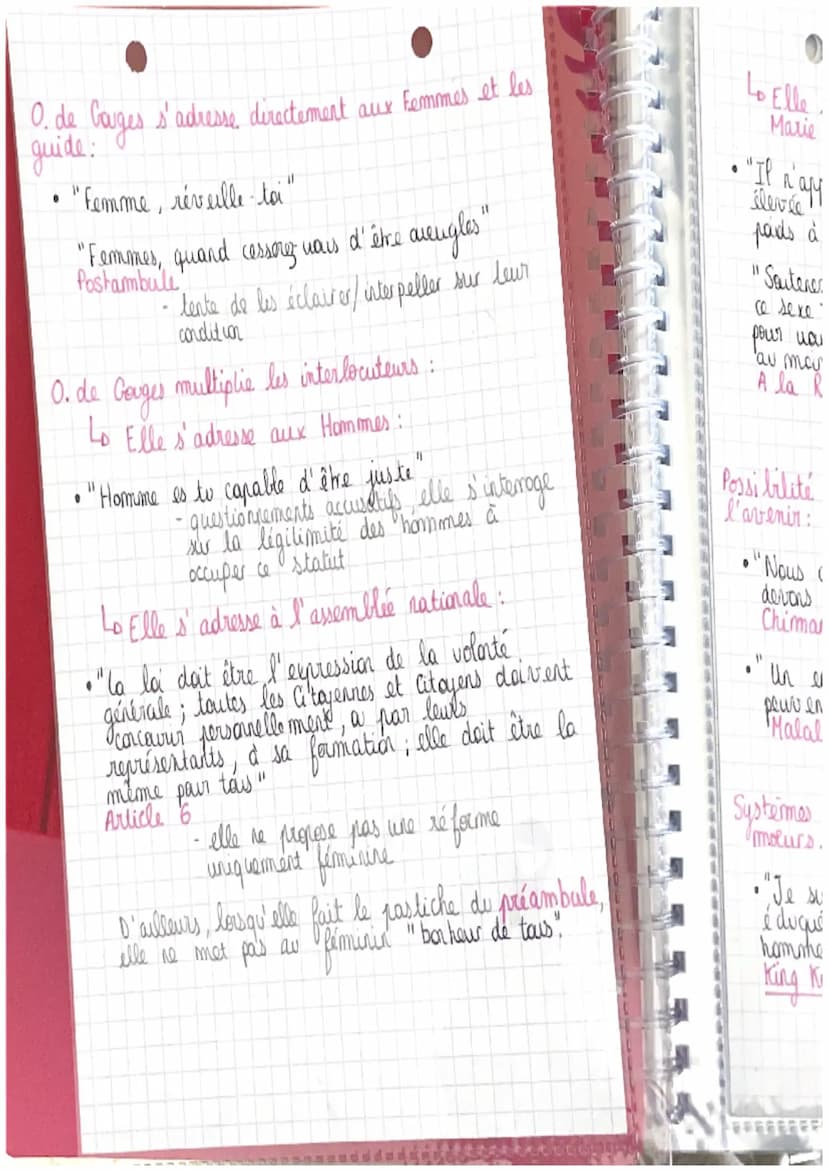 O. de Gouges s'adresse directement aux Femmes et les
guide :
• "Femme, réveille-toi"
"Femmes, quand cesserez vous d'être aveugles"
Postambule
- tente de les éclairer/interpeller sur leur
condition
O. de Gouges multiplie les interlocuteurs :
↳ Elle s'adresse aux Hommes :
• "Homme es tu capable d'être juste"
- questionnements accusatifs, elle s'interroge
sur la légitimité des hommes à
occuper ce statut
↳ Elle s'adresse à l'assemblée nationale :
• "La loi doit être l'expression de la volonté
générale ; toutes les Citoyennes et Citoyens doivent
concourir personnellement, ou par leurs
représentants, à sa formation ; elle doit être la
même pour tous"
Article 6
- elle ne propose pas une réforme
uniquement féminine
D'ailleurs, lorsqu'elle fait le pastiche du préambule,
elle ne met pas au féminin "bonheur de tous".
↳ Elle
Marie
• "Il n'app
élevée
poids à
"Soutenez
ce sexe
pour
A la R
Possibilité
l'avenir :
• "Nous
devons
Chimam
• "Un
peuven
Malal
Systèmes
moeurs.
• "Je su
éduqué
homme
King K